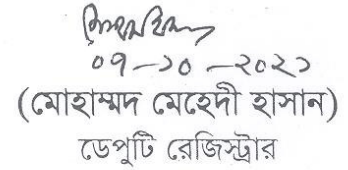 ০৭-১০-২০২১
(মোহাম্মদ মেহেদী হাসান)
ডেপুটি রেজিস্ট্রার